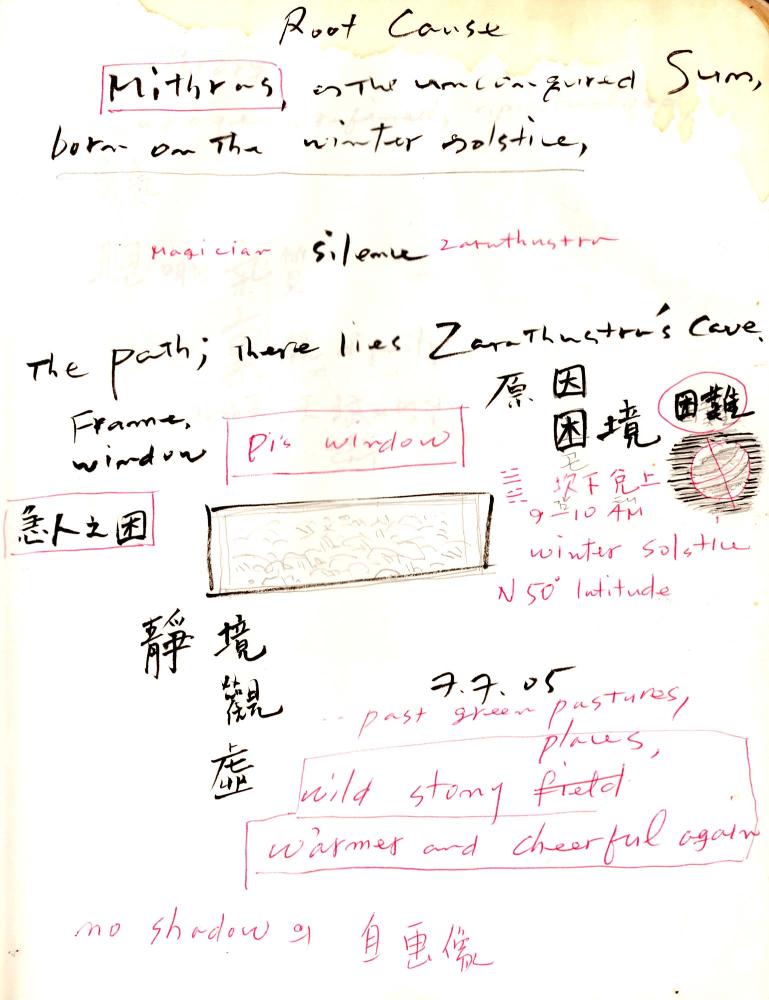 Root Cause
Mithras, as the unconqured Sun,
born on the winter solstice,
Magician silence Zarathustra
The path; there lies Zarathustra's Cave.
原因
困境
困難
Frame,
window
Pi's window
坎下兌上
9-10 AM
winter solstice
N 50° latitude
急人之困
靜境
觀
虛
7.7.05
... past green pastures,
places,
wild stony field
warmer and cheerful again
no shadow의 自画像